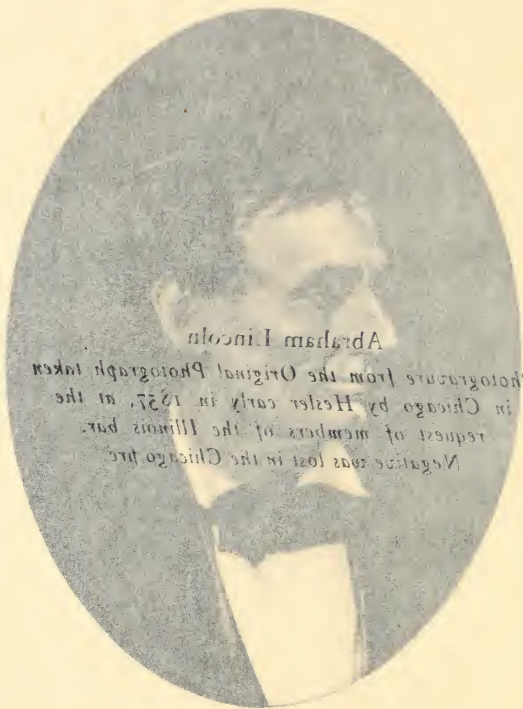 Abraham Lincoln
Photogravure from the Original Photograph taken
in Chicago by Hesler early in 1857, at the
request of members of the Illinois bar.
Negative was lost in the Chicago fire